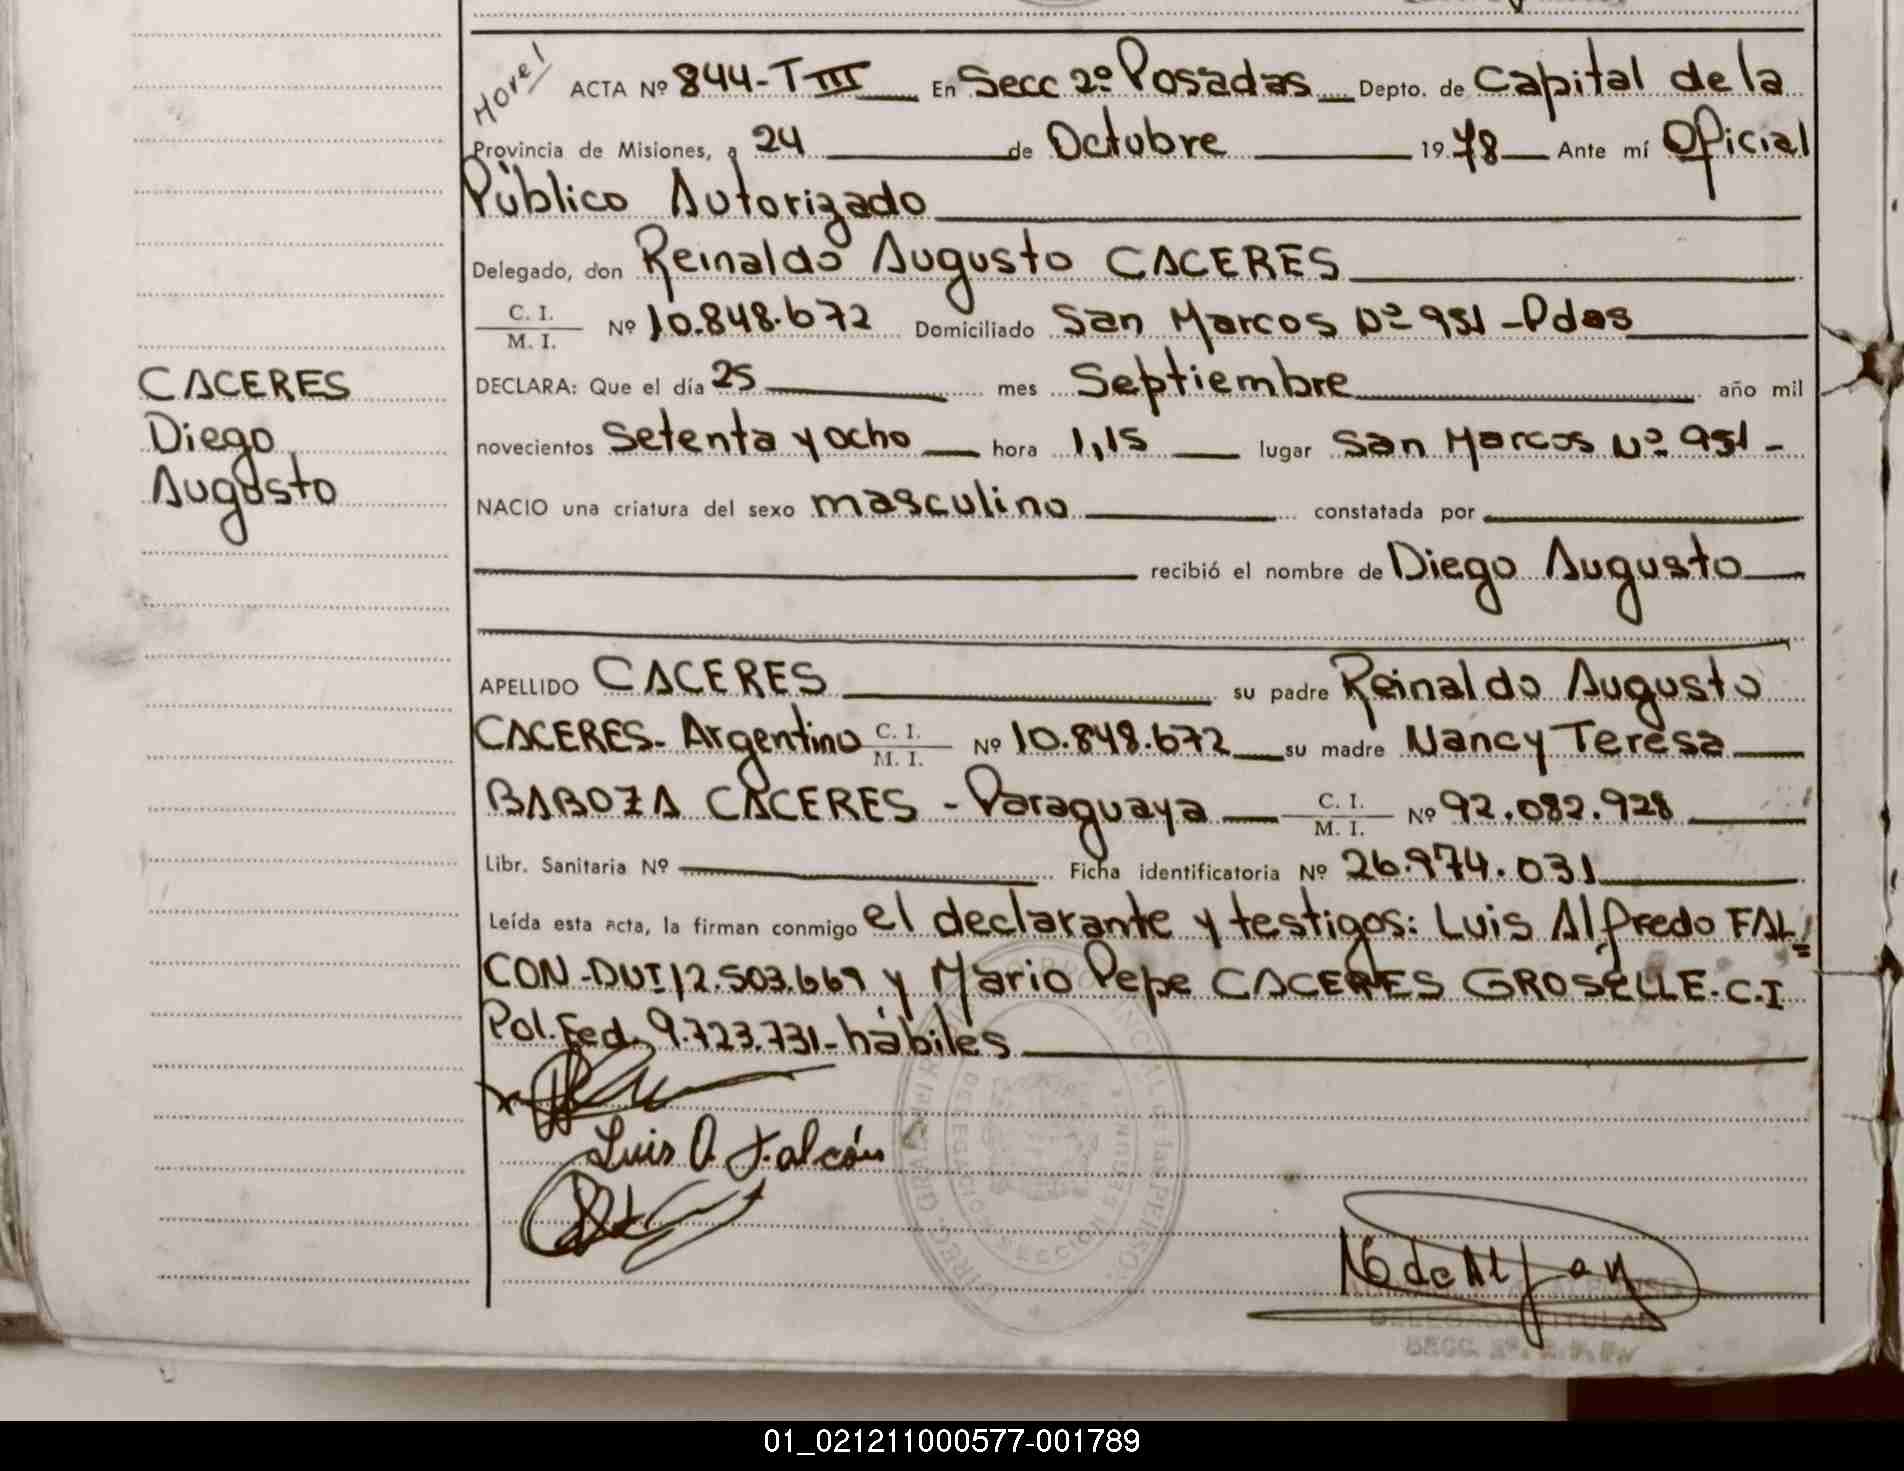 Hovel
ACTA Nº 844-T III En Secc 2º Posadas Depto. de Capital de la
Provincia de Misiones, a 24 de Octubre 1978 Ante mí Oficial
Público Autorizado
Delegado, don Reinaldo Augusto CACERES
C. I.
M. I. Nº 10.848.672 Domiciliado San Marcos Nº 951 - Pdas
DECLARA: Que el día 25 mes Septiembre año mil
novecientos Setenta y ocho hora 1,15 lugar San Marcos Nº 951 -
NACIO una criatura del sexo masculino constatada por
recibió el nombre de Diego Augusto
APELLIDO CACERES su padre Reinaldo Augusto
CACERES - Argentino C. I. M. I. Nº 10.848.672 su madre Nancy Teresa
BABOZA CACERES - Paraguaya C. I. M. I. Nº 92.082.928
Libr. Sanitaria Nº Ficha identificatoria Nº 26.974.031
Leída esta acta, la firman conmigo el declarante y testigos: Luis Alfredo FAL=
CON - DUI 12.503.669 y Mario Pepe CACERES GROSELLE - C.I
Pol. Fed. 9.723.731 - hábiles
CACERES
Diego
Augusto
Luis A. Falcón
DELEGADA TITULAR
SECC. 2ª
01_021211000577-001789